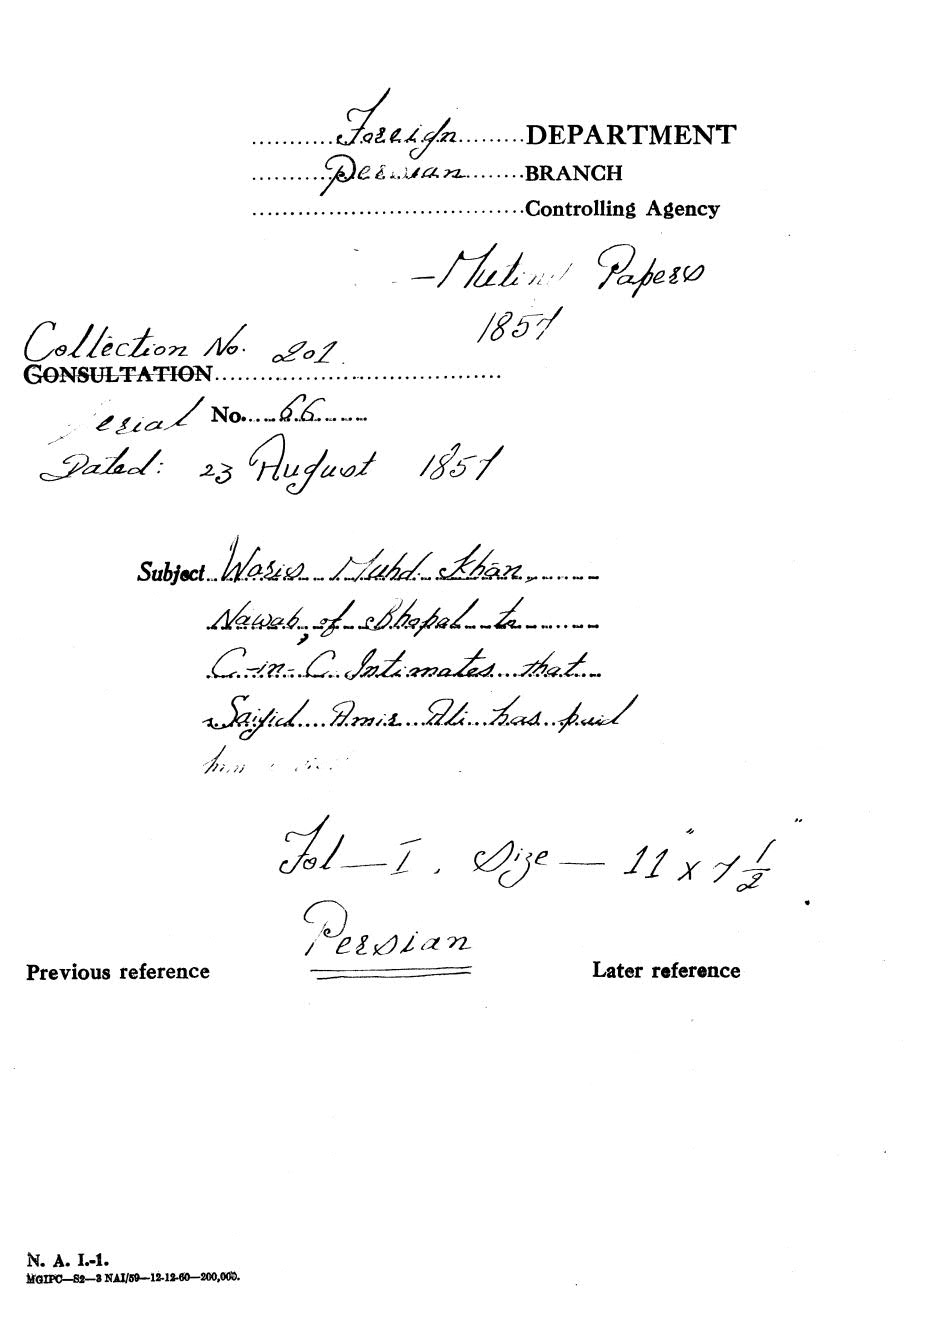 Foreign DEPARTMENT
Persian BRANCH
Controlling Agency
— Mutiny Papers
1857
Collection No. 201.
CONSULTATION
Serial No. 66
Dated: 23 August 1857
Subject Waris Muhd. Khan,
Nawab, of Bhopal to
C-in-C Intimates that
Saiyid Amir Ali has paid
him
Fol — I. Size — 11" x 7 1/2"
Persian
Previous reference
Later reference
N. A. I.-1.
MGIPC—S2—3 NAI/59—12-12-60—200,000.